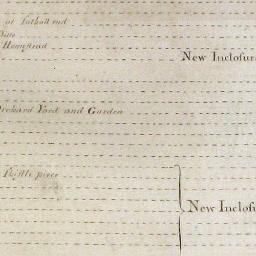 at Tuthall end
Ditto
Homestead
New Inclosur
Orchard Yard and Garden
piece
New Inclosu